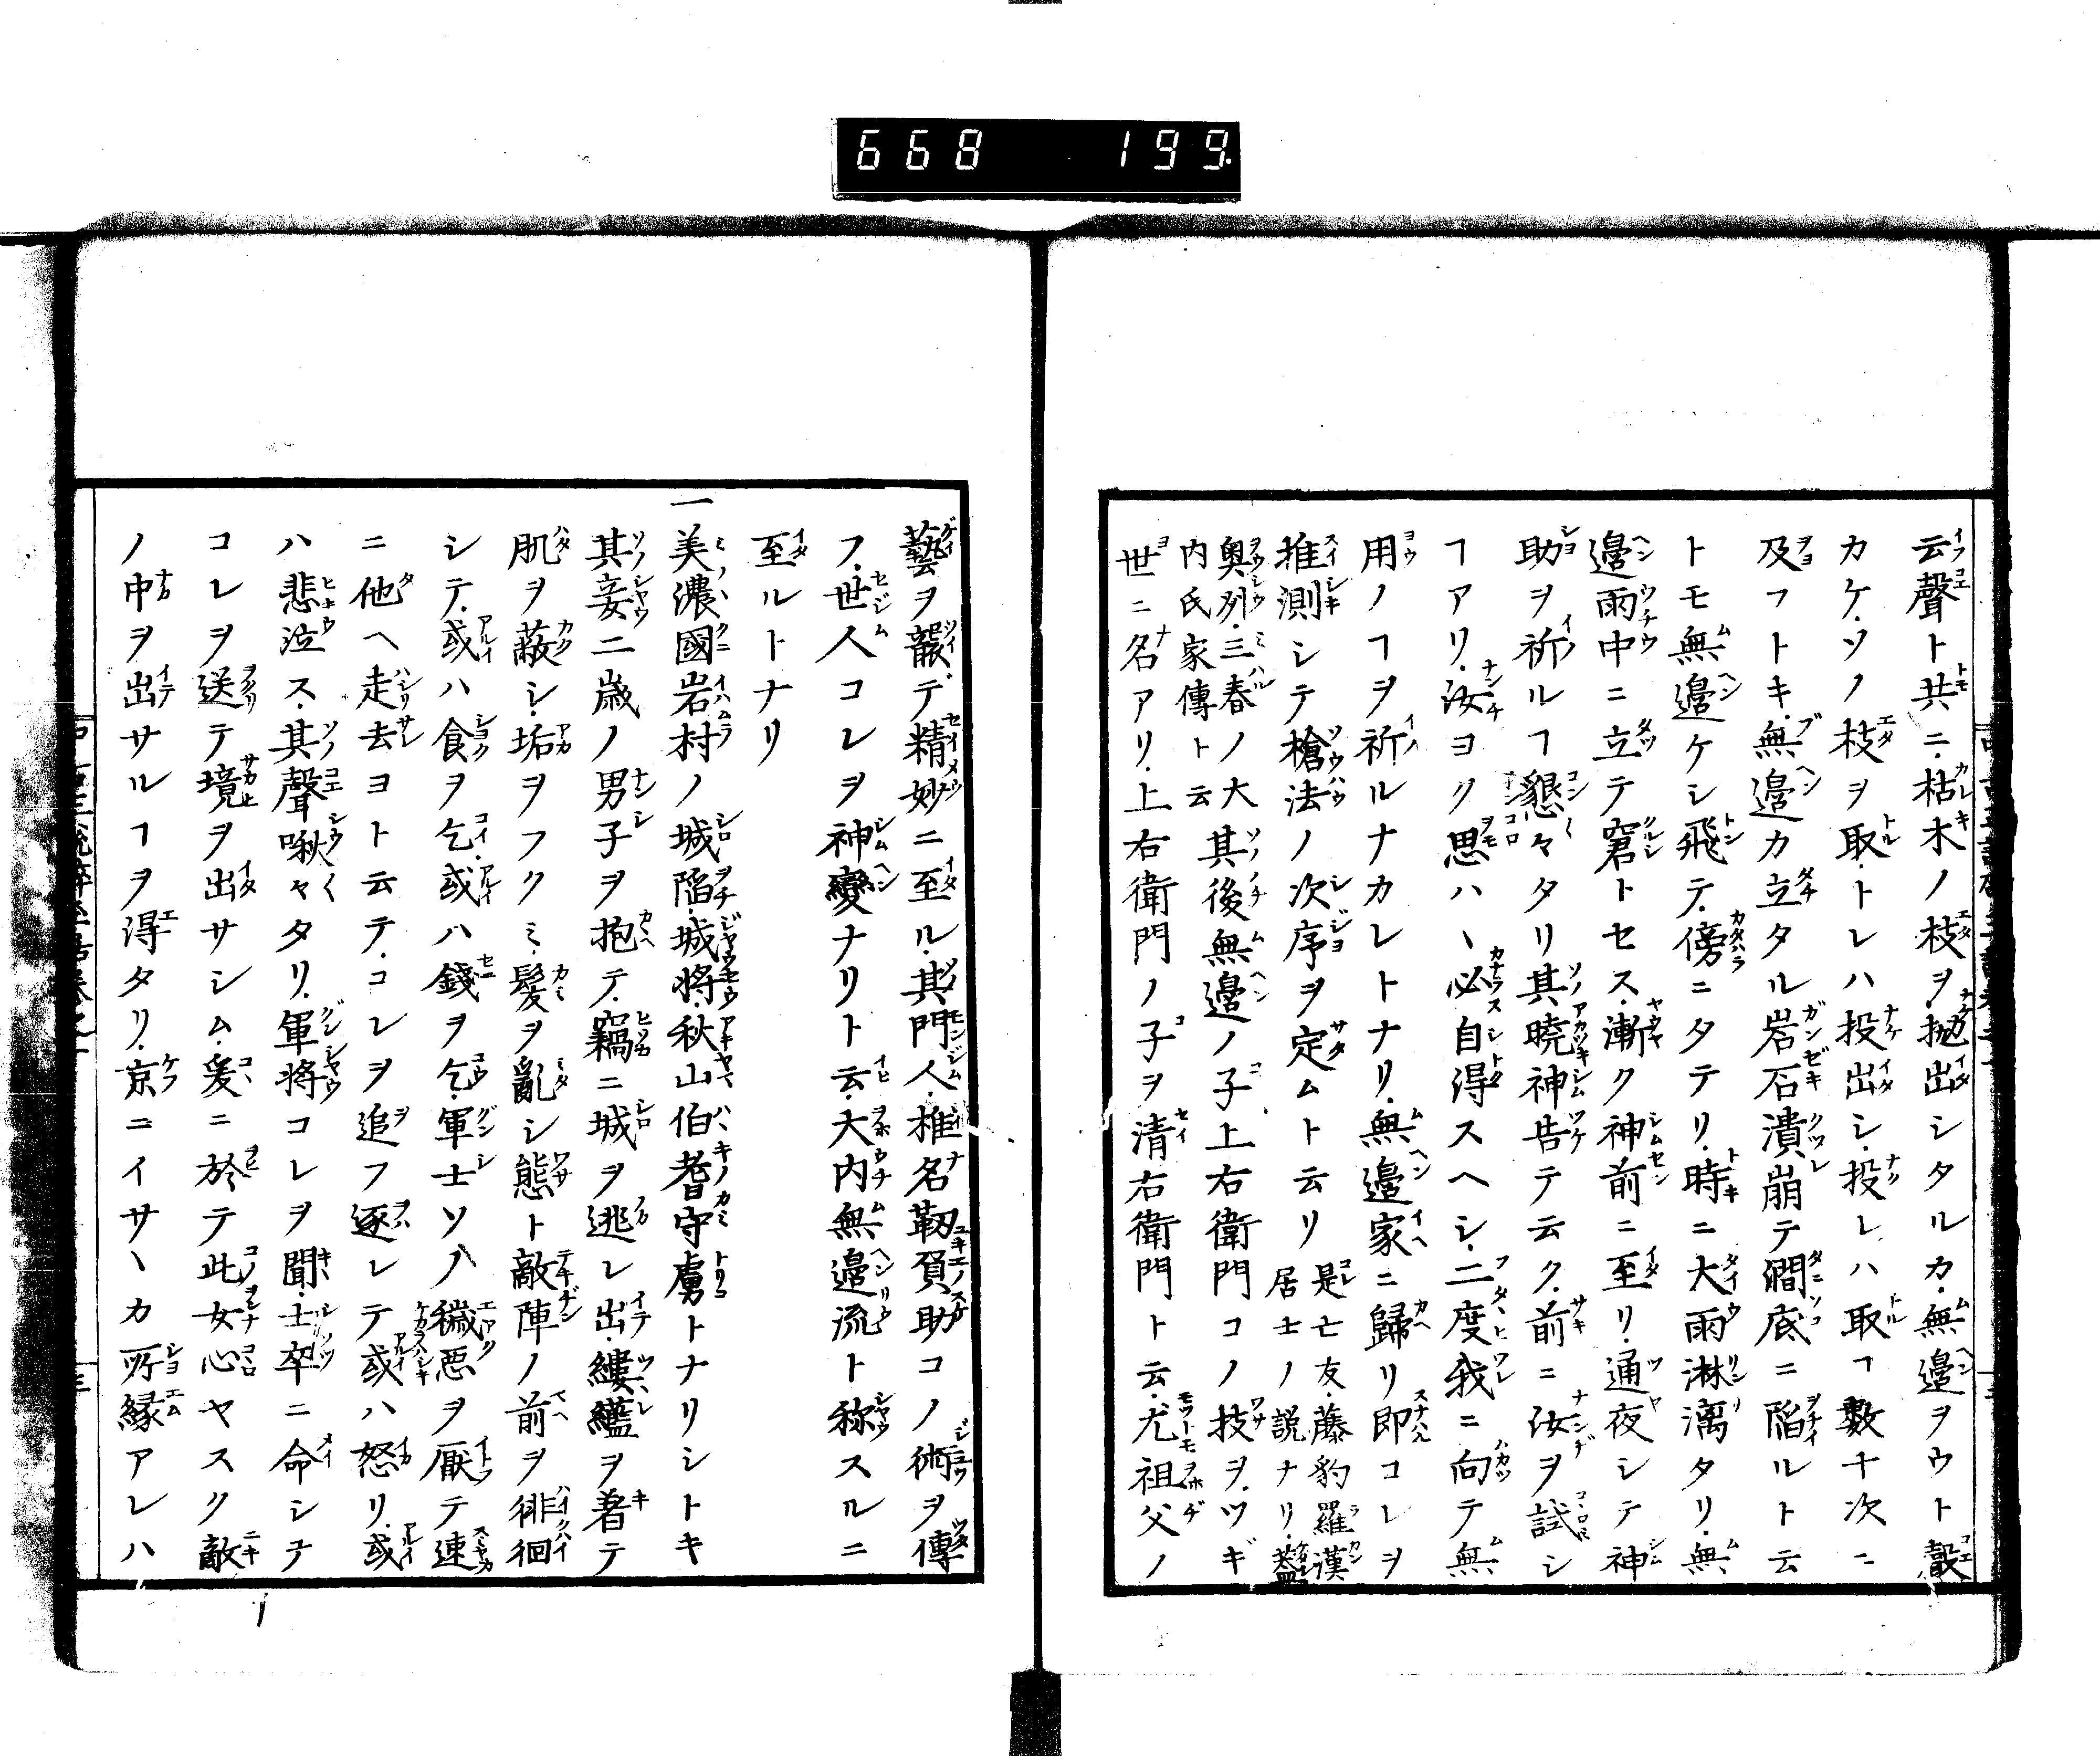 668 199
云聲ト共ニ枯木ノ枝ヲ抛出シタルカ無邉ヲウト聲
カケソノ枝ヲ取トレハ投出シ投レハ取ヿ數十次ニ
及フトキ無邉カ立タル岩石潰崩テ澗底ニ陷ルト云
トモ無邉ケシ飛テ傍ニタテリ時ニ大雨淋漓タリ無
邉雨中ニ立テ窘トセス漸ク神前ニ至リ通夜シテ神
助ヲ祈ルヿ懇々タリ其曉神告テ云ク前ニ汝ヲ試シ
ヿアリ汝ヨク思ハヽ必自得スヘシ二度我ニ向テ無
用ノヿヲ祈ルナカレトナリ無邉家ニ歸リ即コレヲ
推測シテ槍法ノ次序ヲ定ムト云リ是亡友藤豹羅漢
居士ノ説ナリ蓋
奥州三春ノ大
内氏家傳ト云
其後無邉ノ子上右衛門コノ技ヲツギ
世ニ名アリ上右衛門ノ子ヲ清右衛門ト云尤祖父ノ
藝ヲ襲デ精妙ニ至ル其門人椎名靭負助コノ術ヲ傳
フ世人コレヲ神變ナリト云大内無邉流ト称スルニ
至ルトナリ
一美濃國岩村ノ城陷城將秋山伯耆守虜トナリシトキ
其妾二歳ノ男子ヲ抱テ竊ニ城ヲ逃レ出縷襤ヲ着テ
肌ヲ蔽シ垢ヲフクミ髮ヲ亂シ態ト敵陣ノ前ヲ徘徊
シテ或ハ食ヲ乞或ハ錢ヲ乞軍士ソノ穢惡ヲ厭テ速
ニ他ヘ走去ヨト云テコレヲ追フ逐レテ或ハ怒リ或
ハ悲泣ス其聲啾々タリ軍將コレヲ聞士卒ニ命シテ
コレヲ送テ境ヲ出サシム爰ニ於テ此女心ヤスク敵
ノ中ヲ出サルヿヲ得タリ京ニイサヽカ所縁アレハ